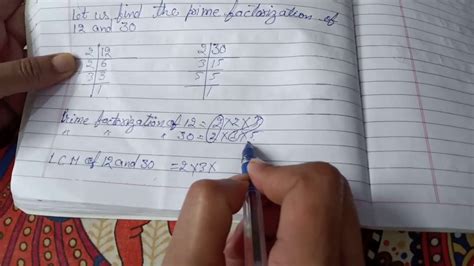 Let us find the prime factorization of
12 and 30
2 | 12
2 | 6
3 | 3
1
2 | 30
3 | 15
5 | 5
1
Prime factorization of 12 = 2 x 2 x 3
" " 30 = 2 x 3 x 5
LCM of 12 and 30 = 2 x 3 x